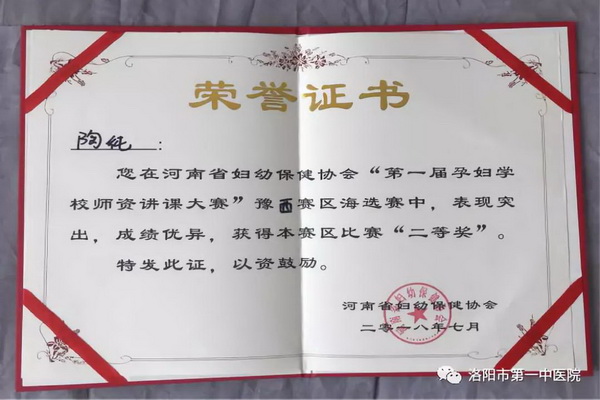 荣誉证书
陶纯：
您在河南省妇幼保健协会“第一届孕妇学
校师资讲课大赛”豫西赛区海选赛中，表现突
出，成绩优异，获得本赛区比赛“二等奖”。
特发此证，以资鼓励。
河南省妇幼保健协会
二零一八年七月
河南省妇幼保健协会
洛阳市第一中医院